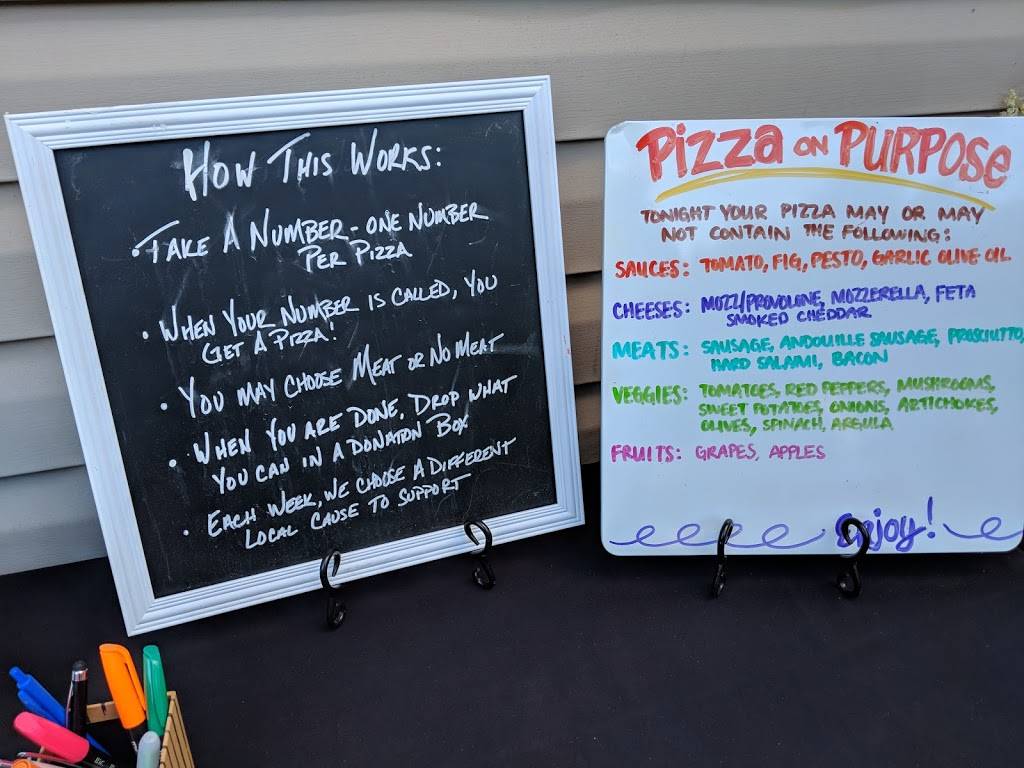 HOW THIS WORKS:
• TAKE A NUMBER - ONE NUMBER
PER PIZZA
• WHEN YOUR NUMBER IS CALLED, YOU
GET A PIZZA!
• YOU MAY CHOOSE MEAT OR NO MEAT
• WHEN YOU ARE DONE, DROP WHAT
YOU CAN IN A DONATION BOX
• EACH WEEK, WE CHOOSE A DIFFERENT
LOCAL CAUSE TO SUPPORT
Pizza ON PURPOSE
TONIGHT YOUR PIZZA MAY OR MAY
NOT CONTAIN THE FOLLOWING:
SAUCES: TOMATO, FIG, PESTO, GARLIC OLIVE OIL
CHEESES: MOZZ/PROVOLONE, MOZZERELLA, FETA
SMOKED CHEDDAR
MEATS: SAUSAGE, ANDOUILLE SAUSAGE, PROSCIUTTO,
HARD SALAMI, BACON
VEGGIES: TOMATOES, RED PEPPERS, MUSHROOMS,
SWEET POTATOES, ONIONS, ARTICHOKES,
OLIVES, SPINACH, ARGULA
FRUITS: GRAPES, APPLES
Enjoy!